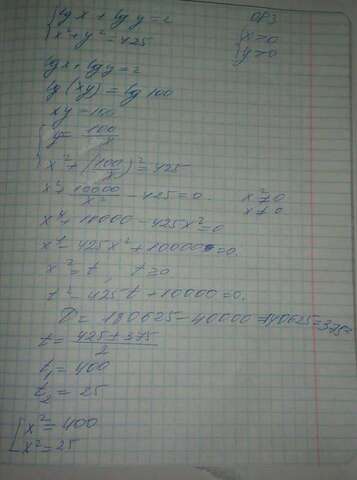 { lg x + lg y = 2   ОДЗ
{ x² + y² = 425   { x > 0
{ y > 0
lg x + lg y = 2
lg (xy) = lg 100
xy = 100
{ y = 100/x
{ x² + (100/x)² = 425
x² + 10000/x² - 425 = 0   x² ≠ 0
x ≠ 0
x⁴ + 10000 - 425x² = 0
x⁴ - 425x² + 10000 = 0.
x² = t, t ≥ 0
t² - 425t + 10000 = 0.
D = 180625 - 40000 = 140625 = 375²
t = (425 ± 375)/2
t₁ = 400
t₂ = 25
[ x² = 400
[ x² = 25